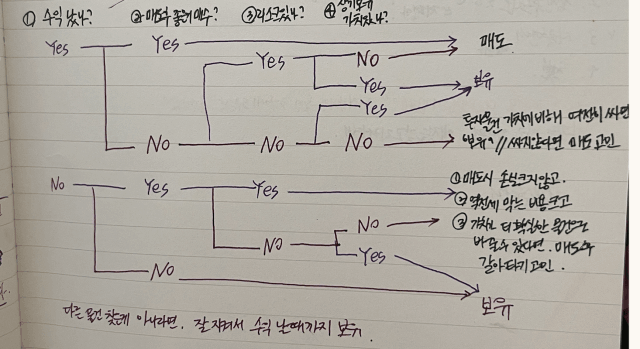 ① 수익 났나? ② 매도후 좋은 매수? ③ 리스크 있나? ④ 장기보유 가치있나?
Yes Yes 매도
Yes No
Yes 보유
Yes
No No No 투자물건 가치에 비해 여전히 싸면
"보유" // 싸지않다면 매도 고민
No Yes Yes ① 매도시 손실크지않고.
② 역전세 막는 비용크고
No No ③ 가치가 더 확실한 물건으로
바꿀수 있다면. 매도후
Yes 갈아타기 고민.
No
보유
다른 물건 찾은게 아니라면, 잘 지켜서 수익 날때까지 보유.